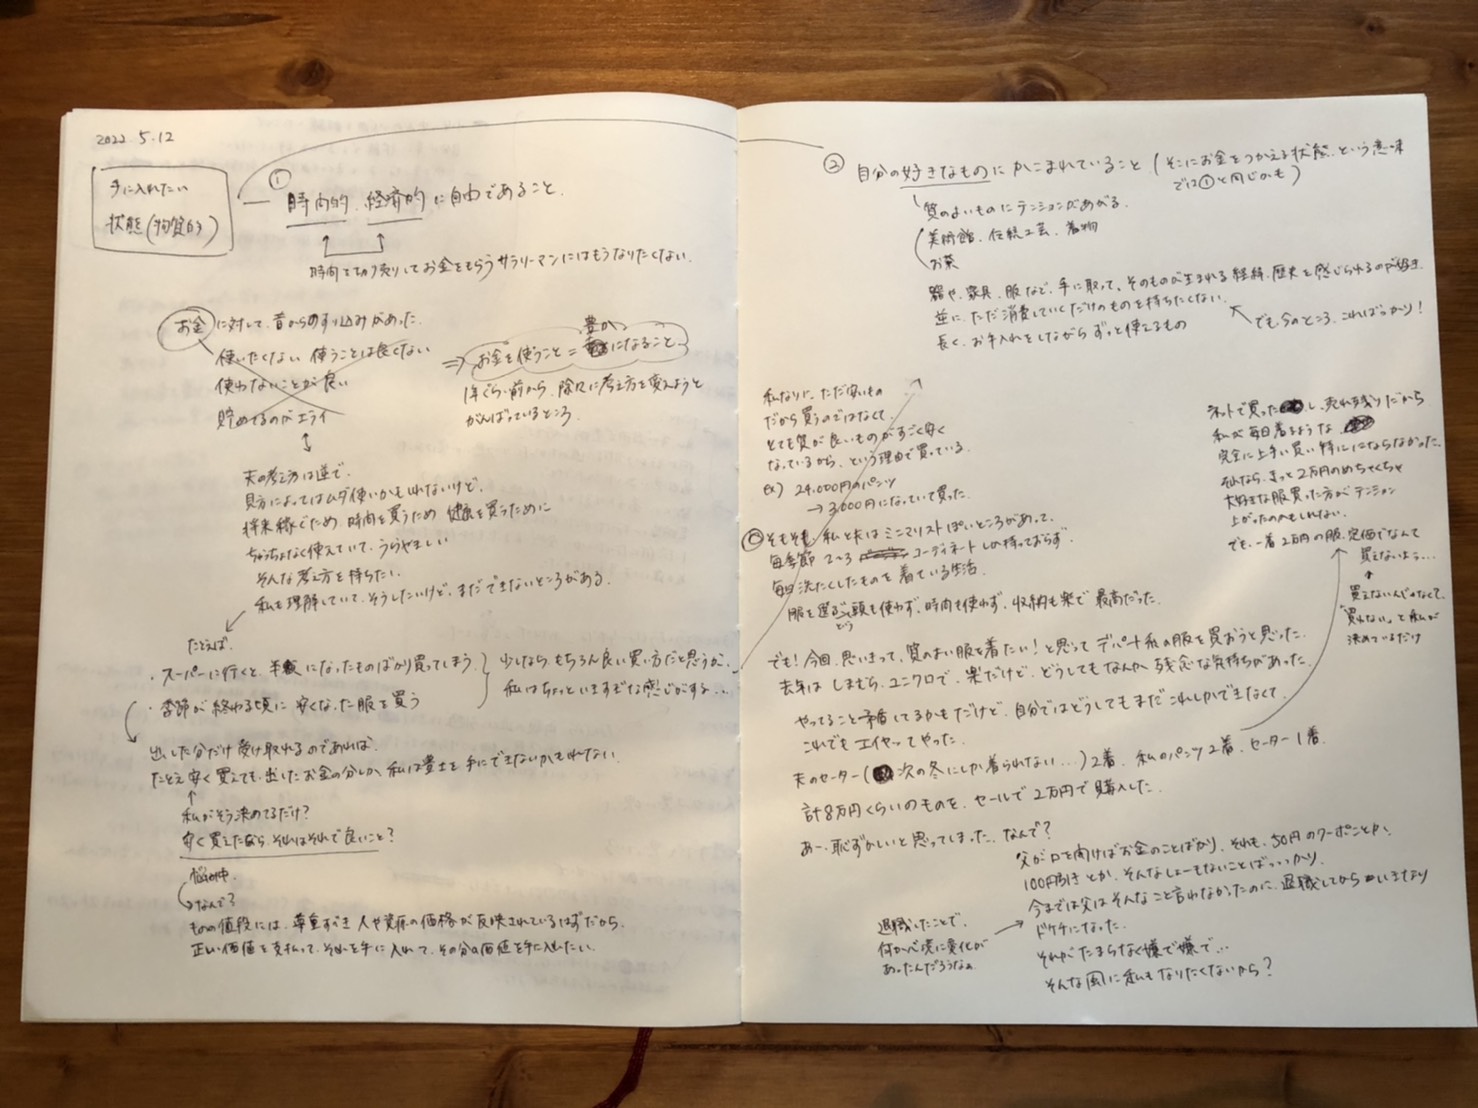 2022.5.12
手に入れたい
状態(物質的)
① 時間的、経済的に自由であること。
時間を切り売りしてお金をもらうサラリーマンにはもうなりたくない。
お金に対して、昔からのすり込みがあった。
使いたくない 使うことは良くない
使わないことが良い
貯めてるのがエライ
⇒ お金を使うこと=豊かになること
1年ぐらい前から、除々に考え方を変えようと
がんばっているところ。
夫の考え方は逆で、
見方によってはムダ使いかもしれないけど、
将来稼ぐため、時間を買うため 健康を買うために
ちゅうちょなく使えていて、うらやましい
そんな考え方を持ちたい。
私も理解していて、そうしたいけど、まだできないところがある。
たとえば、
・スーパーに行くと、半額になったものばかり買ってしまう。
・季節が終わる頃に 安くなった服を買う
少しなら、もちろん良い買い方だと思うが、
私はちょっといきすぎな感じがする…
出した分だけ受け取れるのであれば、
たとえ安く買えても、出したお金の分しか、私は豊かさを手にできないかもしれない。
私がそう決めてるだけ?
安く買えたなら、それはそれで良いこと?
悩み中
なんで?
ものの値段には、尊重すべき人や資源の価格が反映されているはずだから、
正しい価値を支払って、それを手に入れて、その分の価値を手に入れたい。
② 自分の好きなものにかこまれていること(そこにお金をつかえる状態、という意味
では①と同じかも)
質のよいものにテンションがあがる。
美術館、伝統工芸、着物
お茶
器や、家具、服など、手に取って、そのものが生まれる経緯、歴史を感じられるのが好き。
逆に、ただ消費していくだけのものを持ちたくない。
長く、お手入れをしながらずっと使えるもの
でも今のところ、こればっかり!
私なりに、ただ安いもの
だから買うのではなくて、
とても質が良いものがすごく安く
なっているから、という理由で買っている。
ex) 24,000円のパンツ
→3,000円になっていて買った。
ネットで買ったし、売れ残りだから
私が毎日着るような
完全に上手い買い物にはならなかった。
それなら、きっと2万円のめちゃくちゃ
大好きな服買った方がテンション
上がったのかもしれない。
でも、一着2万円の服、定価でなんて
買えないよぅ…
買えないんじゃなくて、
「買わない」と私が
決めているだけ
そもそも、私と夫はミニマリストぽいところがあって、
毎季節 2〜3 コーディネートしか持っておらず、
毎日洗たくしたものを着ている生活。
服を選ぶという頭も使わず、時間も使わず、収納も楽で最高だった。
でも!今回、思いきって、質のよい服を着たい!と思って デパート系の服を買おうと思った。
去年は しまむら、ユニクロで、楽だけど、どうしてもなんか 残念な気持ちがあった。
やってること矛盾してるかもだけど、自分ではどうしてもまだこれしかできなくて、
これでもエイヤってやった。
夫のセーター(次の冬にしか着られない…)2着、私のパンツ2着、セーター1着。
計8万円くらいのものを、セールで2万円で購入した。
あー、恥ずかしいと思ってしまった。なんで?
父が口を開けばお金のことばかり、それも、50円のクーポンとか、
100円引きとか、そんなしょーもないことばっっかり。
今までは父はそんなこと言わなかったのに、退職してからいきなり
ドケチになった。
それがたまらなく嫌で嫌で…
そんな風に私もなりたくないから?
退職したことで、
何か心境に変化が
あったんだろうなぁ